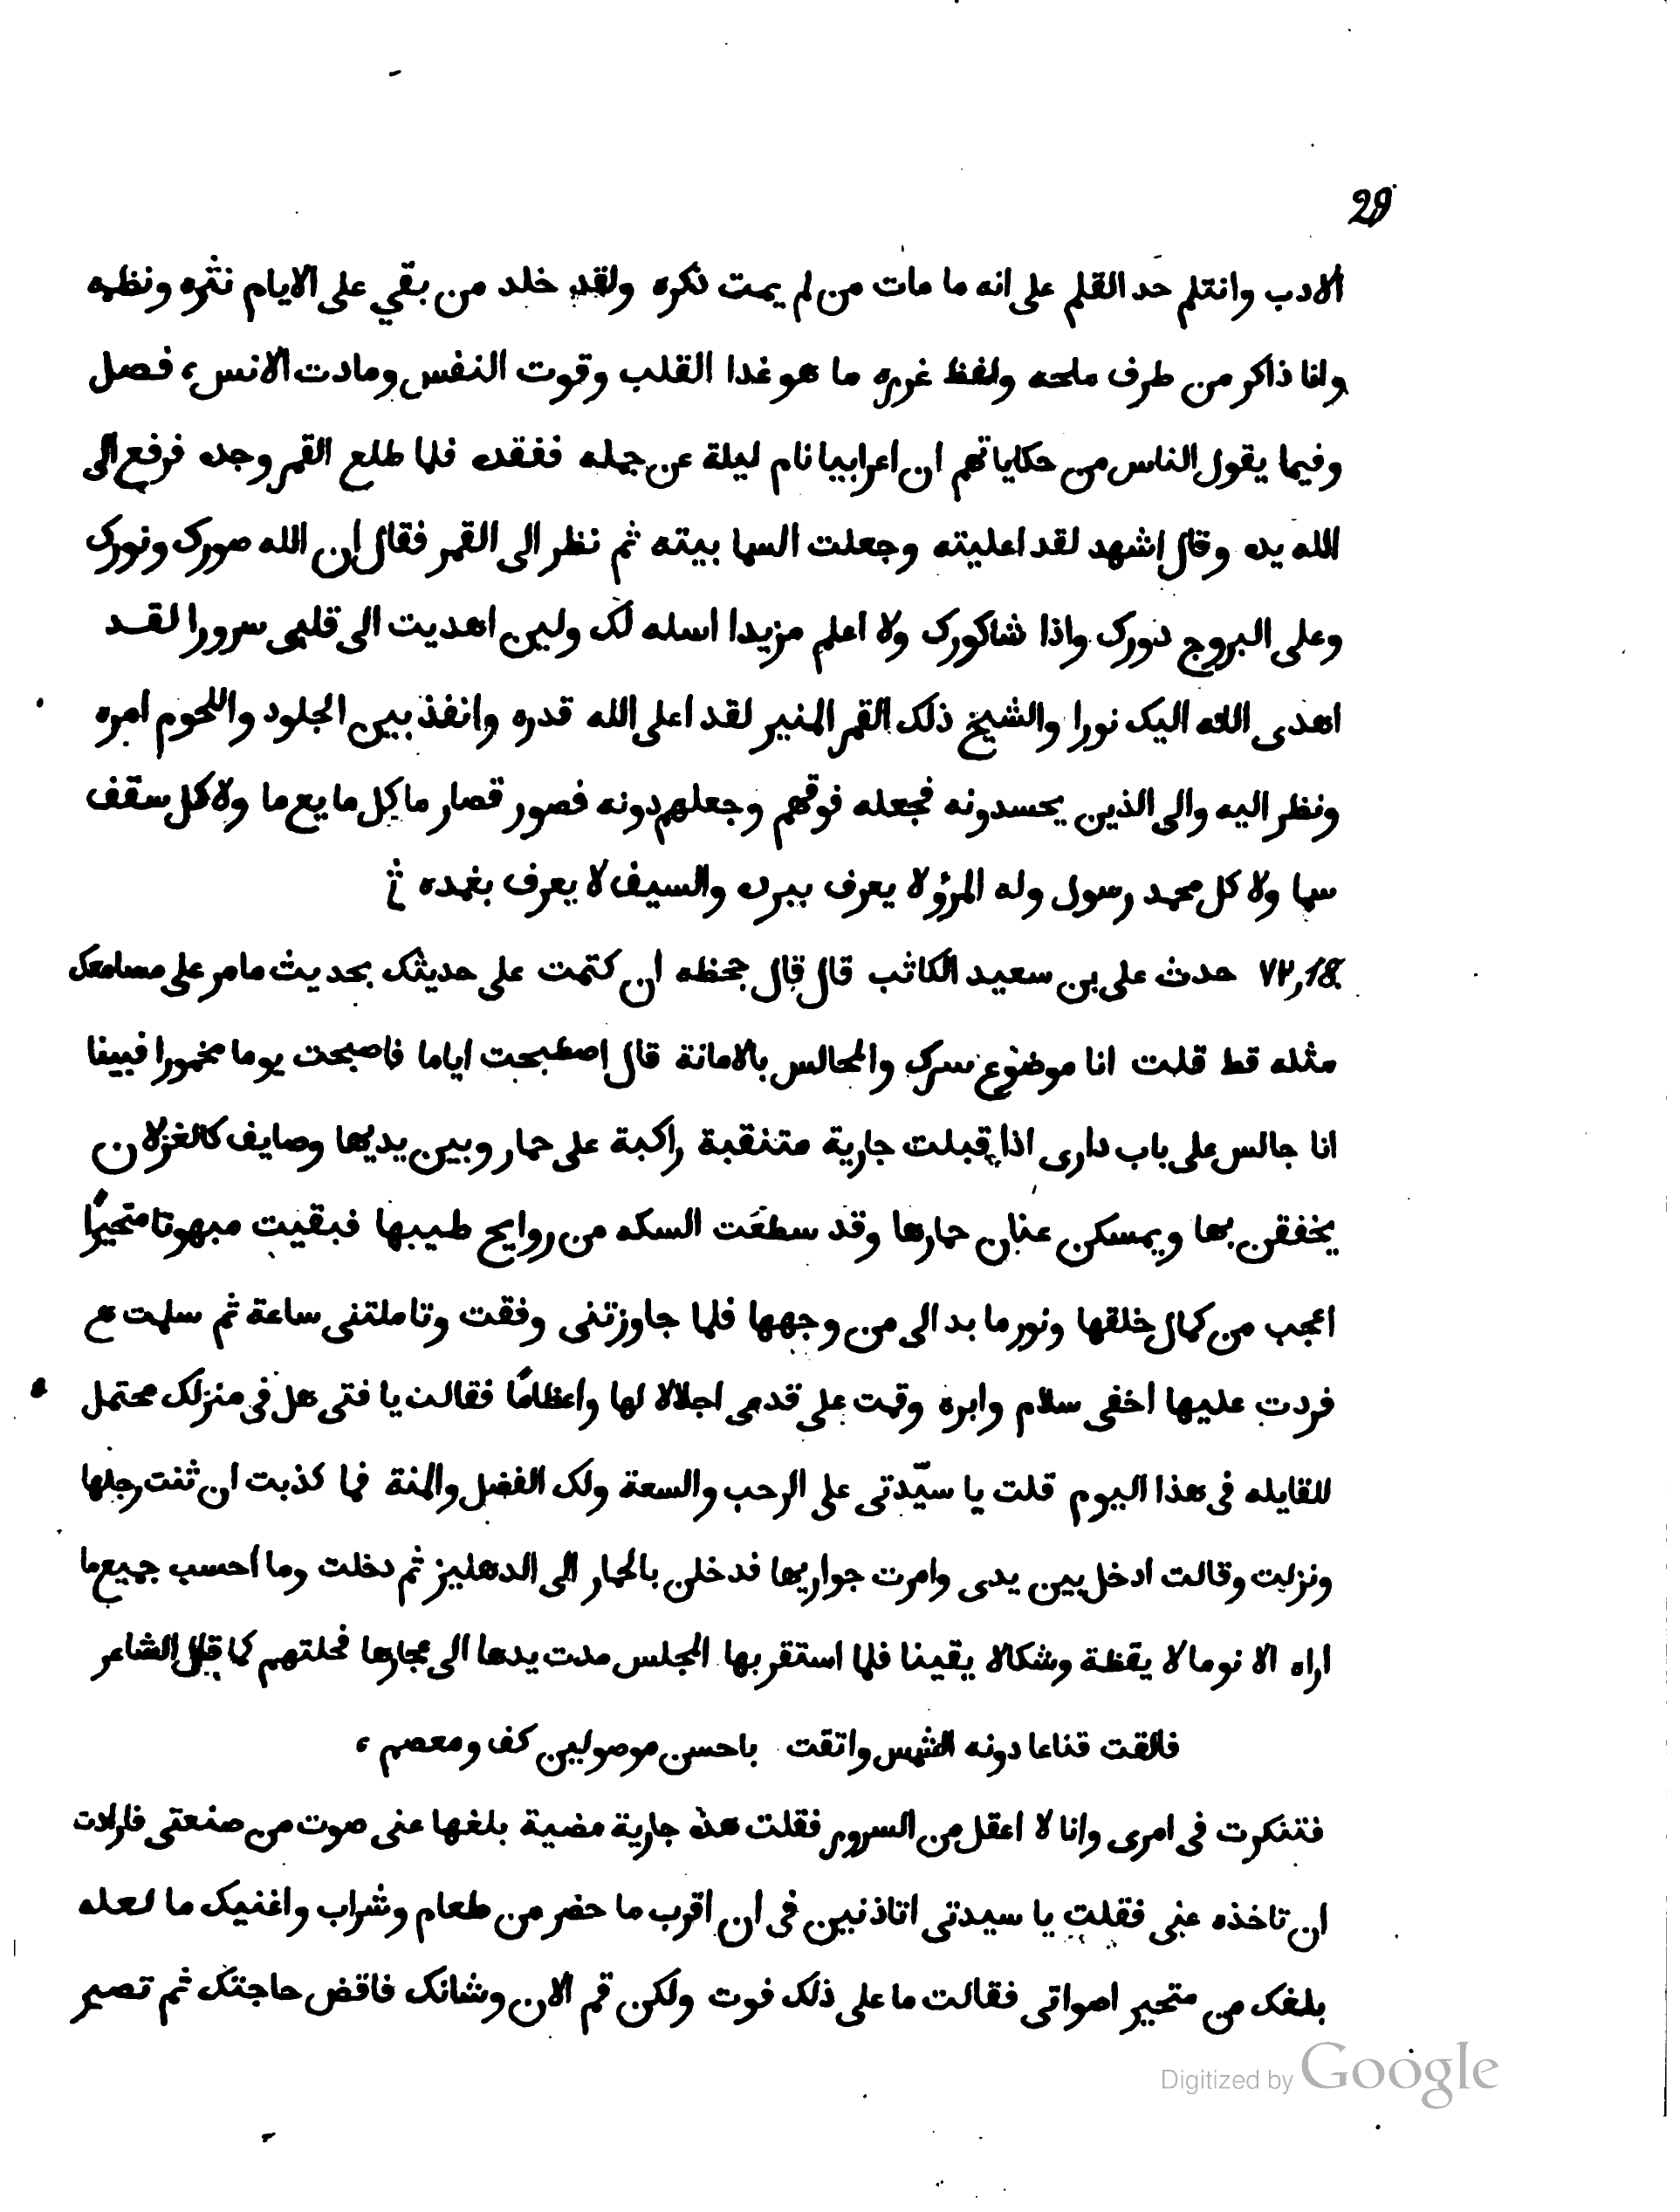 29
الادب وانتلم حد القلم على انه ما مات من لم يمت ذكره ولقد خلد من بقي على الايام نثره ونظمه
وانا ذاكر من طرف ملحه ولفظ غرره ما هو غدا القلب وقوت النفس ومادت الانس، فصل
وفيما يقول الناس من حكاياتهم ان اعرابيا نام ليلة عن جمله ففقده فلما طلع القمر وجده فرفع الى
الله يده وقال اشهد لقد اعليته وجعلت السما بيته ثم نظر الى القمر فقال ان الله صورك ونورك
وعلى البروج دورك واذا شاكورك ولا اعلم مزيدا اسله لك ولين اهديت الى قلبى سرورا لقد
اهدى الله اليك نورا والشيخ ذلك القمر المنير لقد اعلى الله قدره وانفذ بين الجلود واللحوم امره
ونظر اليه والى الذين يحسدونه فجعله فوقهم وجعلهم دونه فصور قصار ما كل مايع ما ولا كل سقف
سما ولا كل محمد رسول وله المرؤ لا يعرف ببرده والسيف لا يعرف بغمده
٧٢,18 حدث على بن سعيد الكاتب قال قال جحظه ان كتمت على حديثك بحديث مامر على مسامعك
مثله قط قلت انا موضوع سرك والمجالس بالامانة قال اصطبحت اياما فاصبحت يوما مخمورا فبينا
انا جالس على باب دارى اذا قبلت جارية متنقبة راكبة على حمار وبين يديها وصايف كالغزلان
يخففن بها ويمسكن عنان حمارها وقد سطعت السكه من روايح طيبها فبقيت مبهوتا متحيرًا
اعجب من كمال خلقها ونور ما بد الى من وجهها فلما جاوزتنى وفقت وتاملتنى ساعة ثم سلمت ع
فردت عليها اخفى سلام وابره وقمت على قدمى اجلالا لها واعظامًا فقالت يا فتى هل فى منزلك محتمل
للقايله فى هذا اليوم قلت يا سيّدتى على الرحب والسعة ولك الفضل والمنة فما كذبت ان ثنت رجلها
ونزلت وقالت ادخل بين يدى وامرت جواريها فدخلن بالحمار الى الدهليز ثم دخلت وما احسب جميع ما
اراه الا نوما لا يقظة وشكالا يقينا فلما استقر بها المجلس مدت يدها الى عجارها فحلتهم كما قال الشاعر
فالقت قناعا دونه الشمس واتقت باحسن موصولين كف ومعصم،
فتنكرت فى امرى وانا لا اعقل من السرور فقلت هذه جارية مضية بلغها عنى صوت من صنعتى فارادت
ان تاخذه عنى فقلت يا سيدتى اتاذنين فى ان اقرب ما حضر من طعام وشراب واغنيك ما لعله
بلغك من متحير اصواتى فقالت ما على ذلك فوت ولكن قم الان وشانك فاقض حاجتك ثم تصير
Digitized by Google